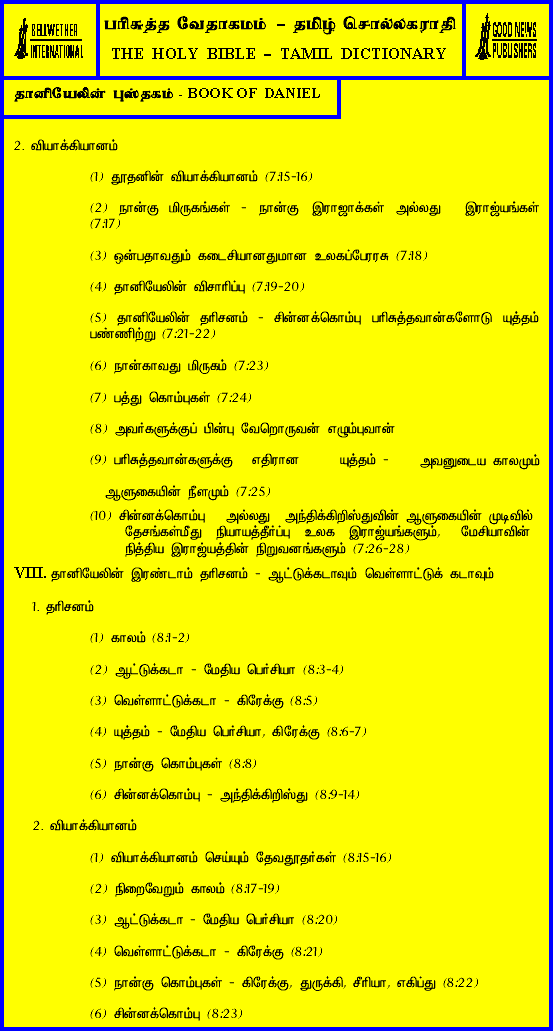 BELLWETHER
INTERNATIONAL
பரிசுத்த வேதாகமம் – தமிழ் சொல்லகராதி
THE HOLY BIBLE – TAMIL DICTIONARY
GOOD NEWS
PUBLISHERS
தானியேலின் புஸ்தகம் - BOOK OF DANIEL
2. வியாக்கியானம்
(1) தூதனின் வியாக்கியானம் (7:15-16)
(2) நான்கு மிருகங்கள் - நான்கு இராஜாக்கள் அல்லது இராஜ்யங்கள்
(7:17)
(3) ஒன்பதாவதும் கடைசியானதுமான உலகப்பேரரசு (7:18)
(4) தானியேலின் விசாரிப்பு (7:19-20)
(5) தானியேலின் தரிசனம் - சின்னக்கொம்பு பரிசுத்தவான்களோடு யுத்தம்
பண்ணிற்று (7:21-22)
(6) நான்காவது மிருகம் (7:23)
(7) பத்து கொம்புகள் (7:24)
(8) அவர்களுக்குப் பின்பு வேறொருவன் எழும்புவான்
(9) பரிசுத்தவான்களுக்கு எதிரான யுத்தம் - அவனுடைய காலமும்
ஆளுகையின் நீளமும் (7:25)
(10) சின்னக்கொம்பு அல்லது அந்திக்கிறிஸ்துவின் ஆளுகையின் முடிவில்
தேசங்கள்மீது நியாயத்தீர்ப்பு உலக இராஜ்யங்களும், மேசியாவின்
நித்திய இராஜ்யத்தின் நிறுவனங்களும் (7:26-28)
VIII. தானியேலின் இரண்டாம் தரிசனம் - ஆட்டுக்கடாவும் வெள்ளாட்டுக் கடாவும்
1. தரிசனம்
(1) காலம் (8:1-2)
(2) ஆட்டுக்கடா - மேதிய பெர்சியா (8:3-4)
(3) வெள்ளாட்டுக்கடா - கிரேக்கு (8:5)
(4) யுத்தம் - மேதிய பெர்சியா, கிரேக்கு (8:6-7)
(5) நான்கு கொம்புகள் (8:8)
(6) சின்னக்கொம்பு - அந்திக்கிறிஸ்து (8:9-14)
2. வியாக்கியானம்
(1) வியாக்கியானம் செய்யும் தேவதூதர்கள் (8:15-16)
(2) நிறைவேறும் காலம் (8:17-19)
(3) ஆட்டுக்கடா - மேதிய பெர்சியா (8:20)
(4) வெள்ளாட்டுக்கடா - கிரேக்கு (8:21)
(5) நான்கு கொம்புகள் - கிரேக்கு, துருக்கி, சீரியா, எகிப்து (8:22)
(6) சின்னக்கொம்பு (8:23)